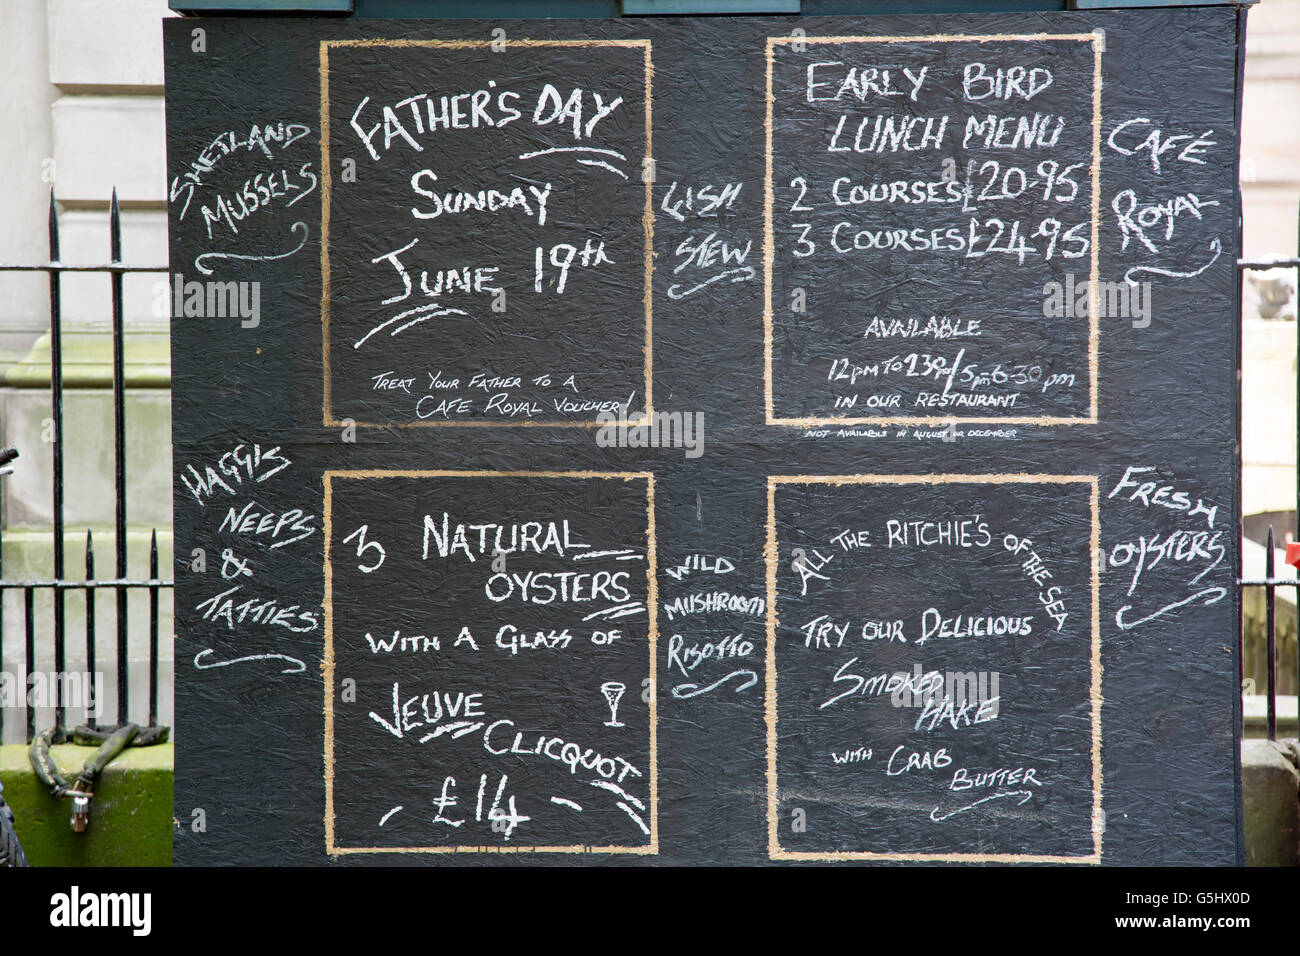 SHETLAND
MUSSELS
FATHER'S DAY
SUNDAY
JUNE 19th
TREAT YOUR FATHER TO A
CAFE ROYAL VOUCHER!
FISH
STEW
EARLY BIRD
LUNCH MENU
2 COURSES £20-95
3 COURSES £24-95
AVAILABLE
12pm TO 230pm/5pm-6-30pm
IN OUR RESTAURANT
NOT AVAILABLE IN AUGUST OR DECEMBER
CAFÉ
ROYAL
HAGGIS
NEEPS
&
TATTIES
3 NATURAL
OYSTERS
WITH A GLASS OF
VEUVE
CLICQUOT
- £14 -
WILD
MUSHROOM
RISOTTO
ALL THE RITCHIE'S OF THE SEA
TRY OUR DELICIOUS
SMOKED
HAKE
WITH CRAB
BUTTER
FRESH
OYSTERS
alamy
alamy stock photo
G5HX0D
www.alamy.com